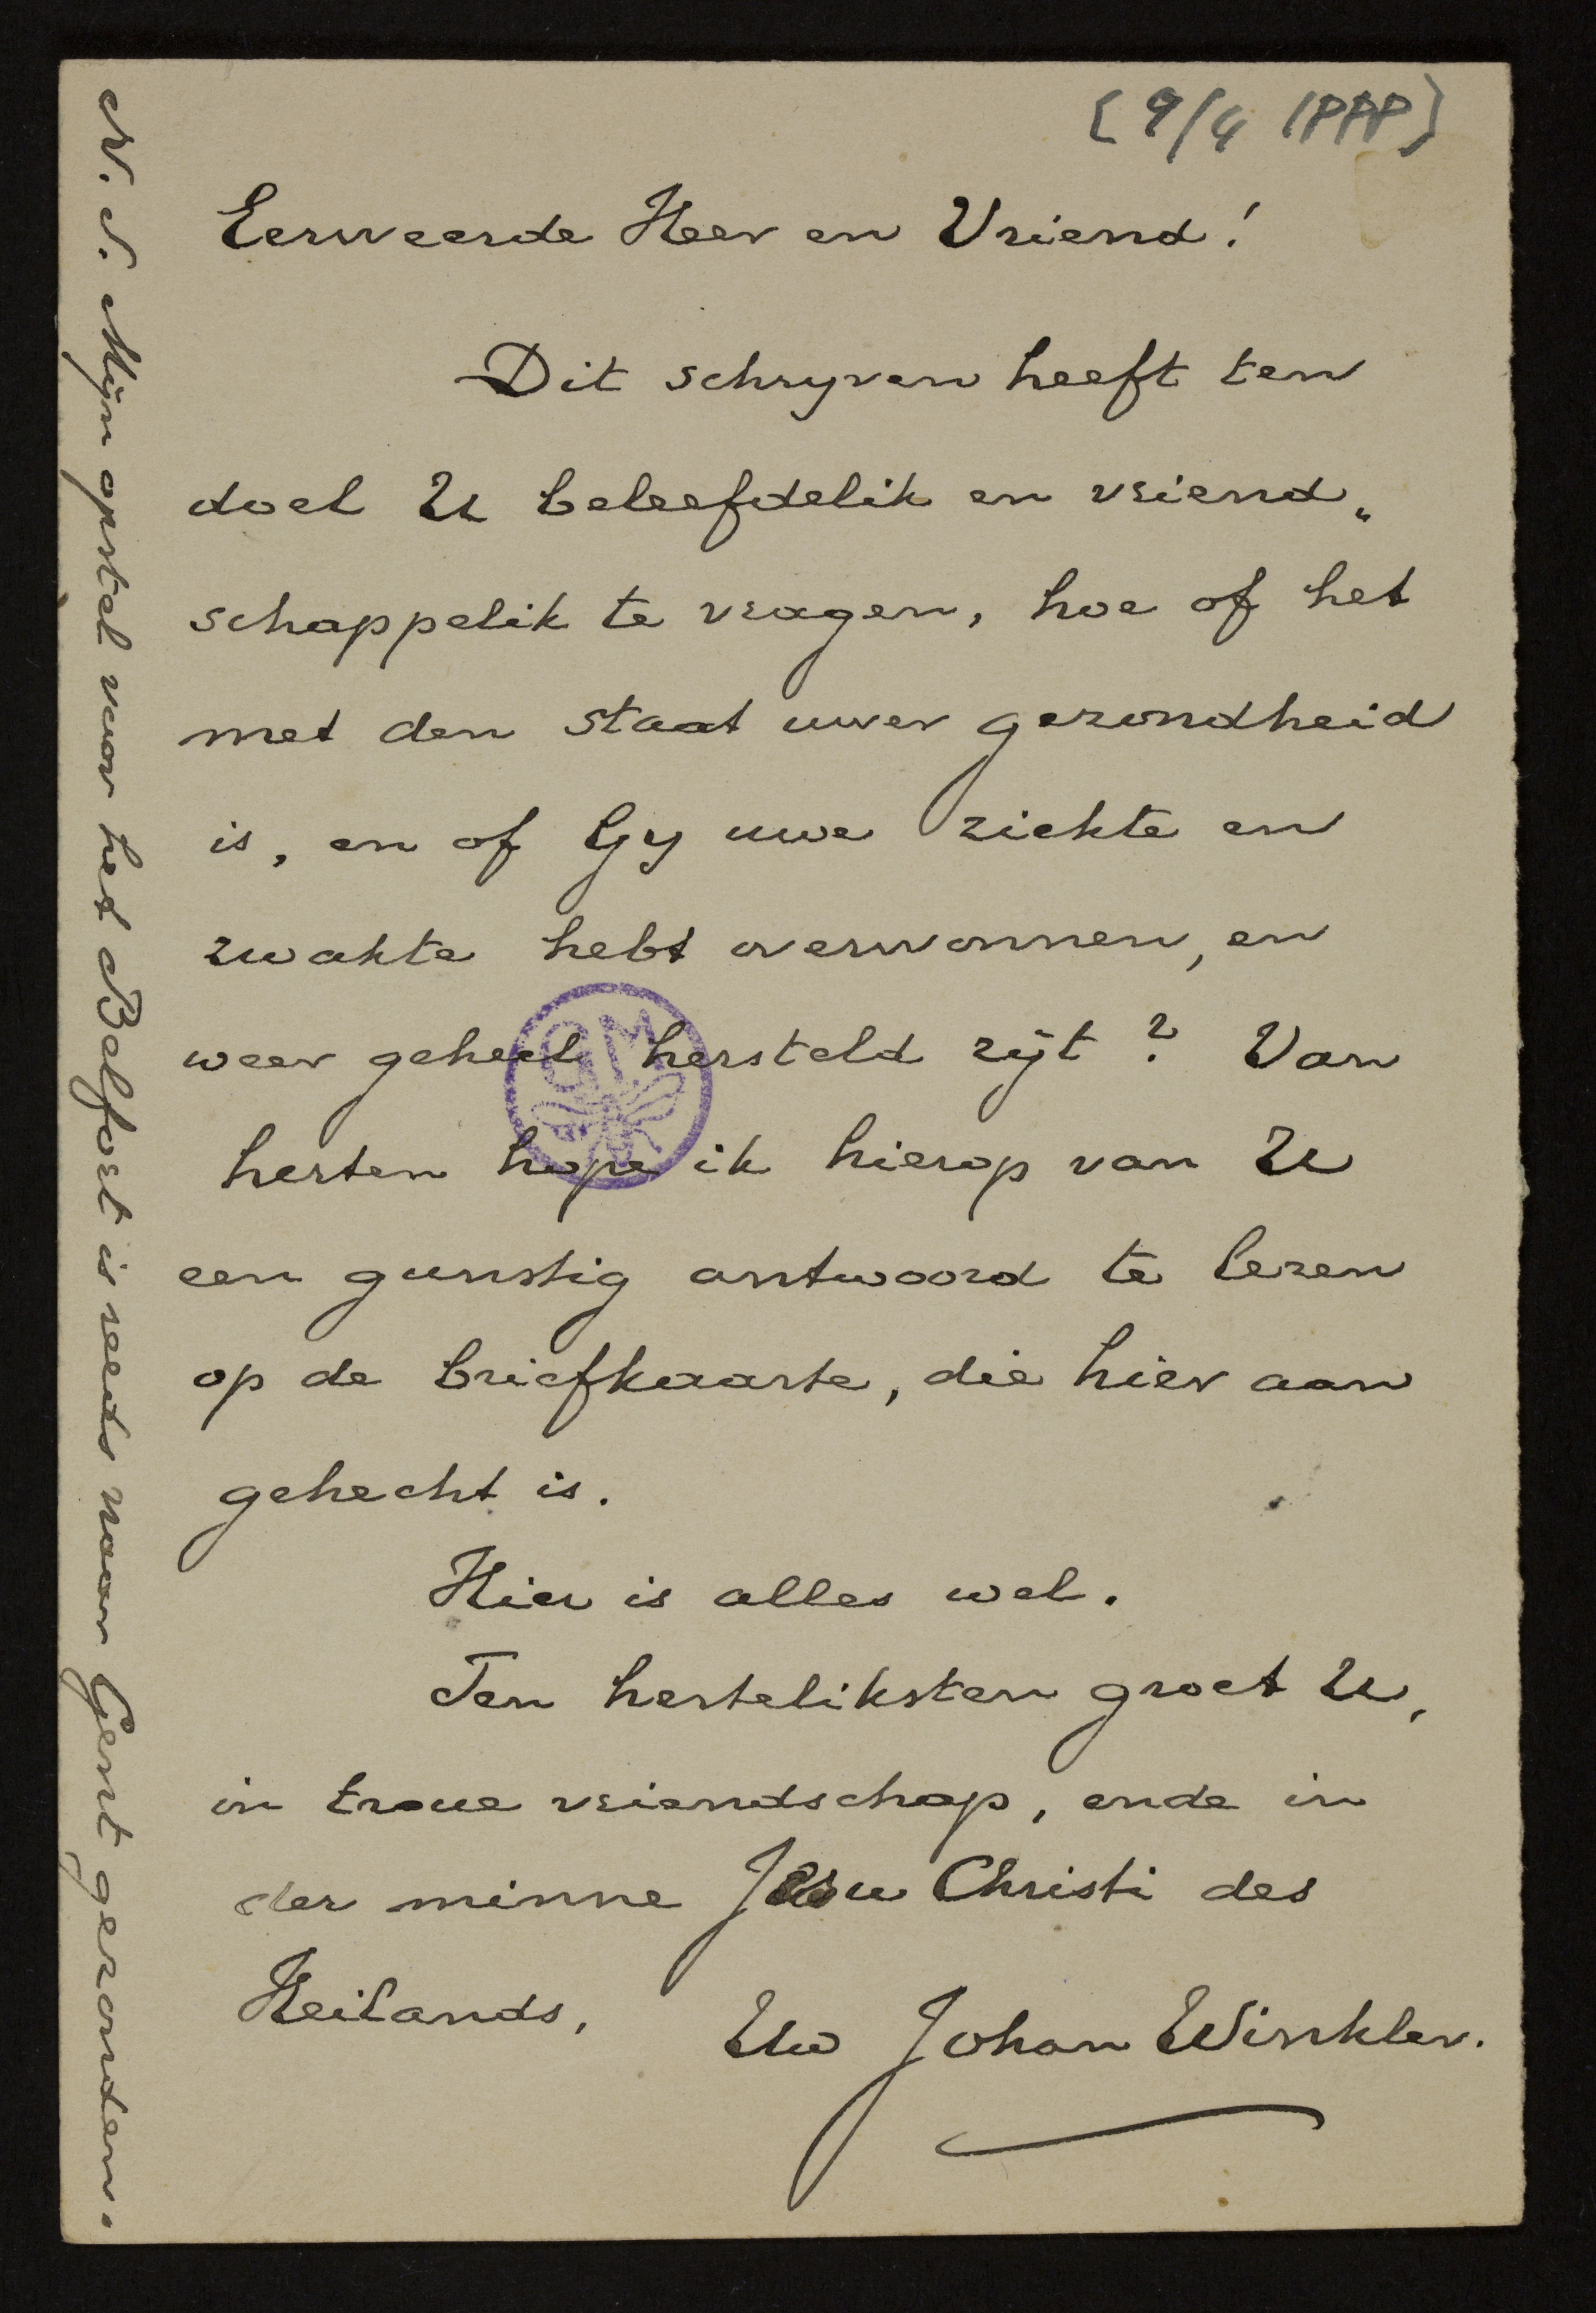 [9/4 1888]
Eerweerde Heer en Vriend!
Dit schryven heeft ten
doel U beleefdelik en vriend„
schappelik te vragen, hoe of het
met den staat uwer gezondheid
is, en of Gy uwe ziekte en
zwakte hebt overwonnen, en
weer geheel hersteld zijt? Van
herten hope ik hierop van U
een gunstig antwoord te lezen
op de briefkaarte, die hier aan
gehecht is.
Hier is alles wel.
Ten herteliksten groet U,
in troue vriendschap, ende in
der minne Jesu Christi des
Heilands,
Uw Johan Winkler.
N. S. Mijn opstel voor het Belfort is reeds naar Gent gezonden.
GM